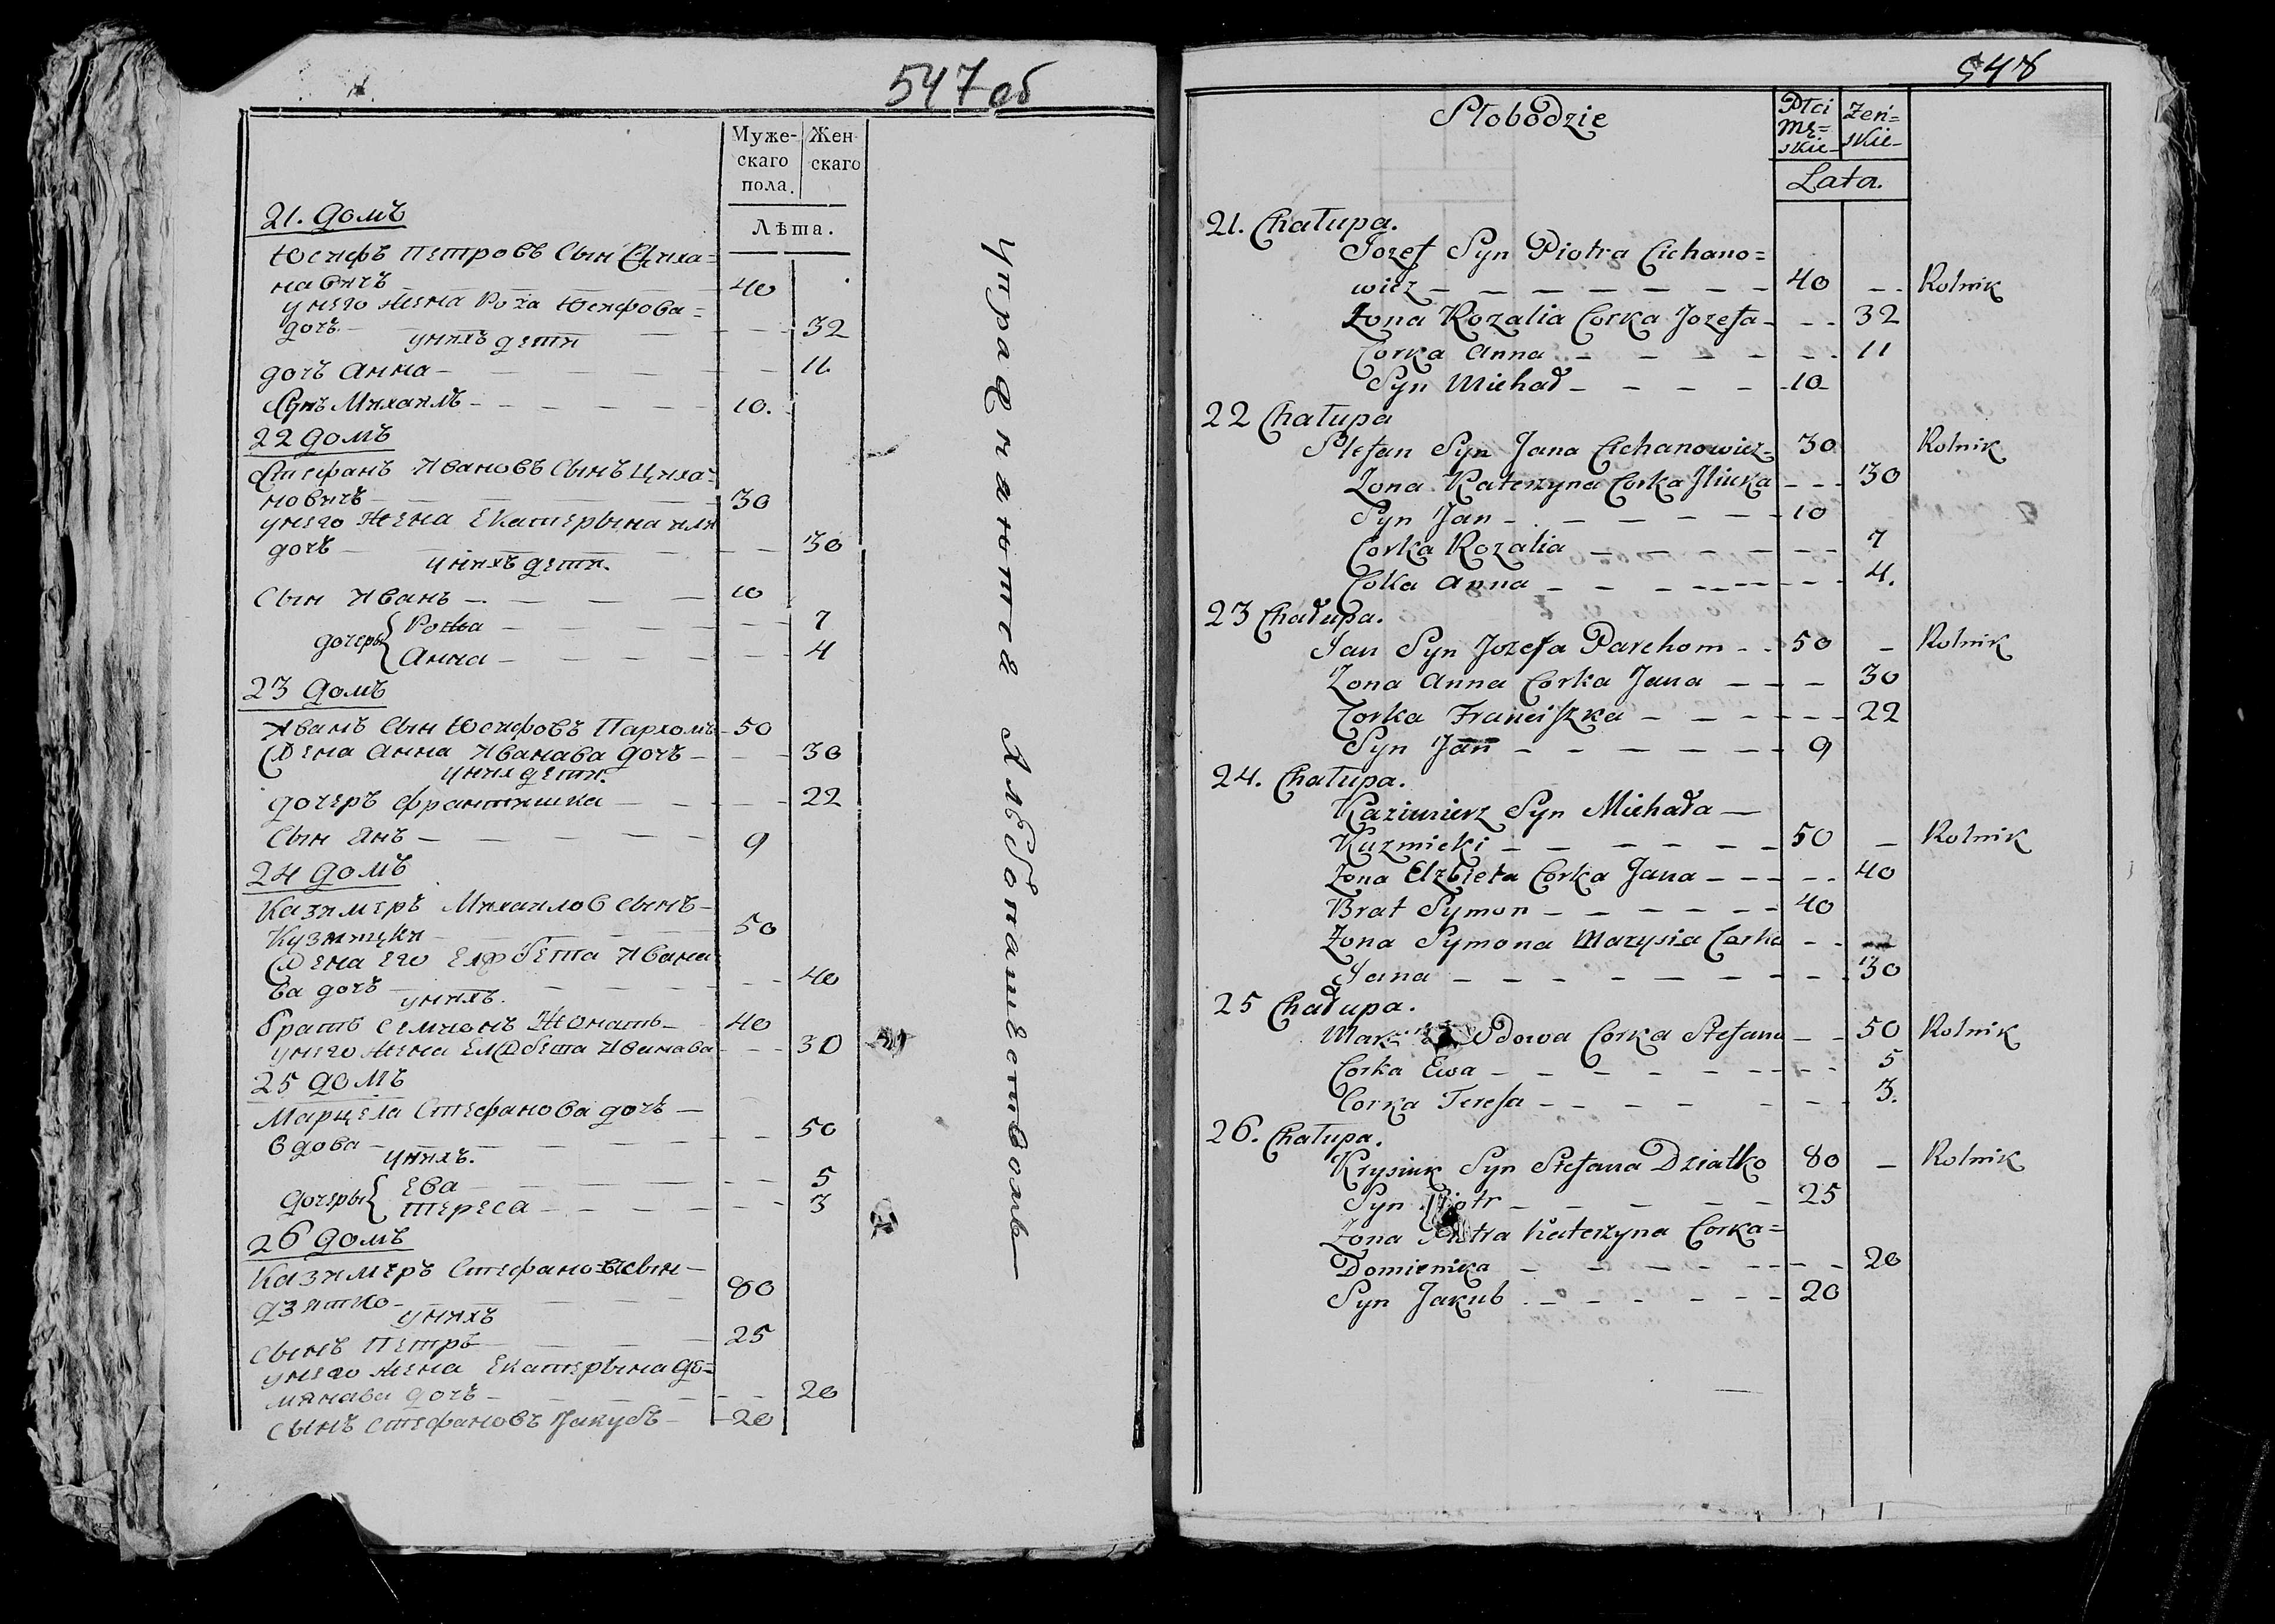 547 об
Муже-
скаго
пола.
Жен-
скаго
Лѣта.
21. домъ
Юсифъ Петровъ Сын Циха=
навичъ — 40
унего жена Роза Юсифова=
дочъ — 32
унихъ дети
дочъ Анна — 11
Сынъ Михаилъ — 10.
22 домъ
Стефанъ Ивановъ Сынъ Циха=
новичъ — 30
унего жена Екатерына или
дочъ — 30
унихъ дети.
Сын Иванъ — 10
дочеры { Рожа — 7
Анна — 4
23 домъ
Иванъ Сын Юсифовъ Пархомъ — 50
Жена Анна Иванава дочъ — 30
уних дети.
дочеръ Франтишка — 22
Сын Янъ — 9
24 домъ
Казимеръ Михаилов сынъ —
Кузмицки — 50
Жена его Елжбета Ивана
ва дочъ — 40
унихъ.
братъ Семионъ Жонатъ — 40
унего жена Елжбета Иванава — 30
25 домъ
Марцела Стефанова дочъ —
вдова — 50
унихъ.
дочеры { Ева — 5
Тереса — 3
26 домъ
Казимеръ Стефановъ сын —
дзятко — 80
унихъ
сынъ Петръ — 25
унего жена Екатерына до=
мянава дочъ — 20
сынъ Стефановъ Якубъ — 20
упражняются Хлѣбопашествомъ
548
Słobodzie
Płci
mę=
skie
żeń=
skie
Lata.
21. Chałupa.
Jozef Syn Piotra Cichano=
wicz — 40 — Rolnik
Zona Rozalia Corka Jozefa — 32
Corka Anna — 11
Syn Michał — 10
22 Chałupa
Stefan Syn Jana Cichanowicz — 30 Rolnik
Zona Katerzyna Corka Iliuka — 30
Syn Jan — 10
Corka Rozalia — 7
Coka Anna — 4.
23 Chałupa.
Jan Syn Jozefa Parchom — 50 — Rolnik
Zona Anna Corka Jana — 30
Corka Franciszka — 22
Syn Jan — 9
24. Chałupa.
Kazimierz Syn Michała —
Kuzmicki — 50 — Rolnik
Zona Elzbieta Corka Jana — 40
Brat Symon — 40
Zona Symona Marysia Corka
Jana — 30
25 Chałupa.
Wdowa Corka Stefana — 50 Rolnik
Corka Ewa — 5
Corka Teresa — 3.
26. Chałupa.
Krysiuk Syn Stefana Dziatko 80 — Rolnik
Syn Piotr — 25
Zona Piotra Katerzyna Corka=
Domienika — 20
Syn Jakub — 20